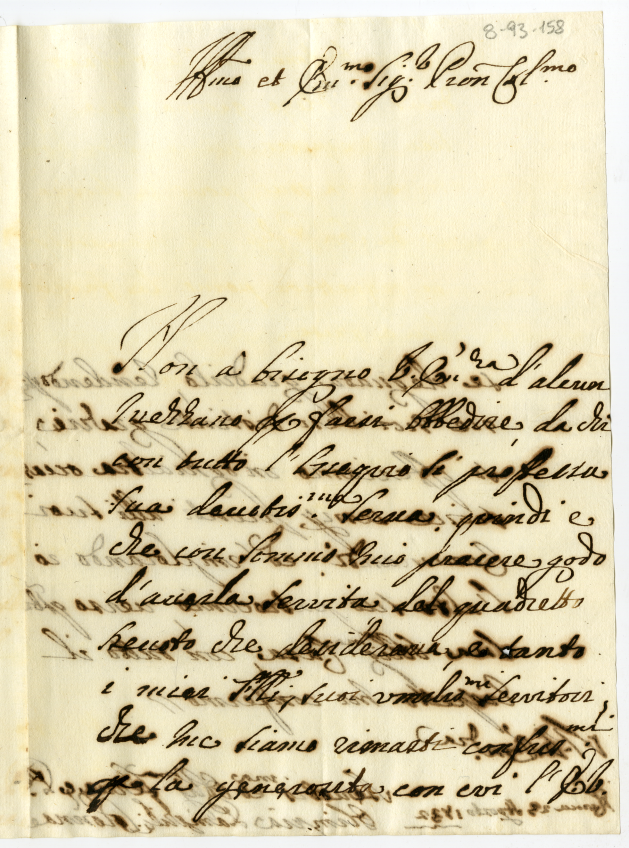 8-93-158
Ill.mo et Rev.mo Sig.r Pron Col.mo
Non à bisogno d'alcun
mezzano p farsi obbedire da chi
con tutto l'ossequio si professa
sua devotis.ma serva, quindi e
che con sommo mio piacere godo
d'averla servita del quadretto
che desiderava, e tanto
i miei F.lli, suoi umilis.mi servitori
che Me siamo rimasti confusis.mi
p la generosita con cvi l'